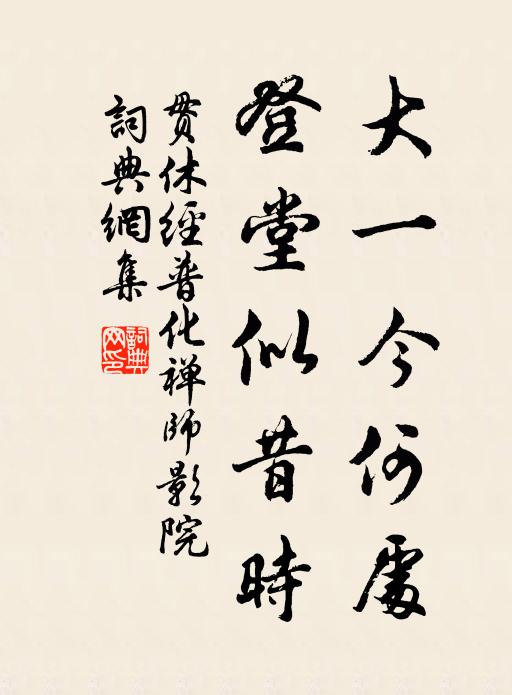 大一今何處
登堂似昔時
貫休經普化禅師影院
詞典網集
詞典网印